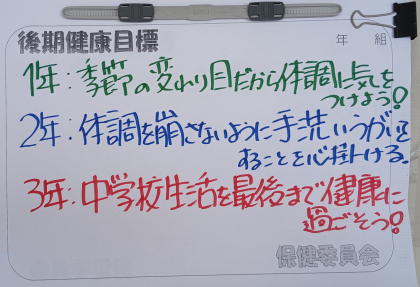 後期健康目標
年 組
1年:季節の変わり目だから体調に気を
つけよう!
2年:体調を崩さないように手洗いうがいを
することを心掛ける。
3年:中学校生活を最後まで健康に
過ごそう!
保健委員会